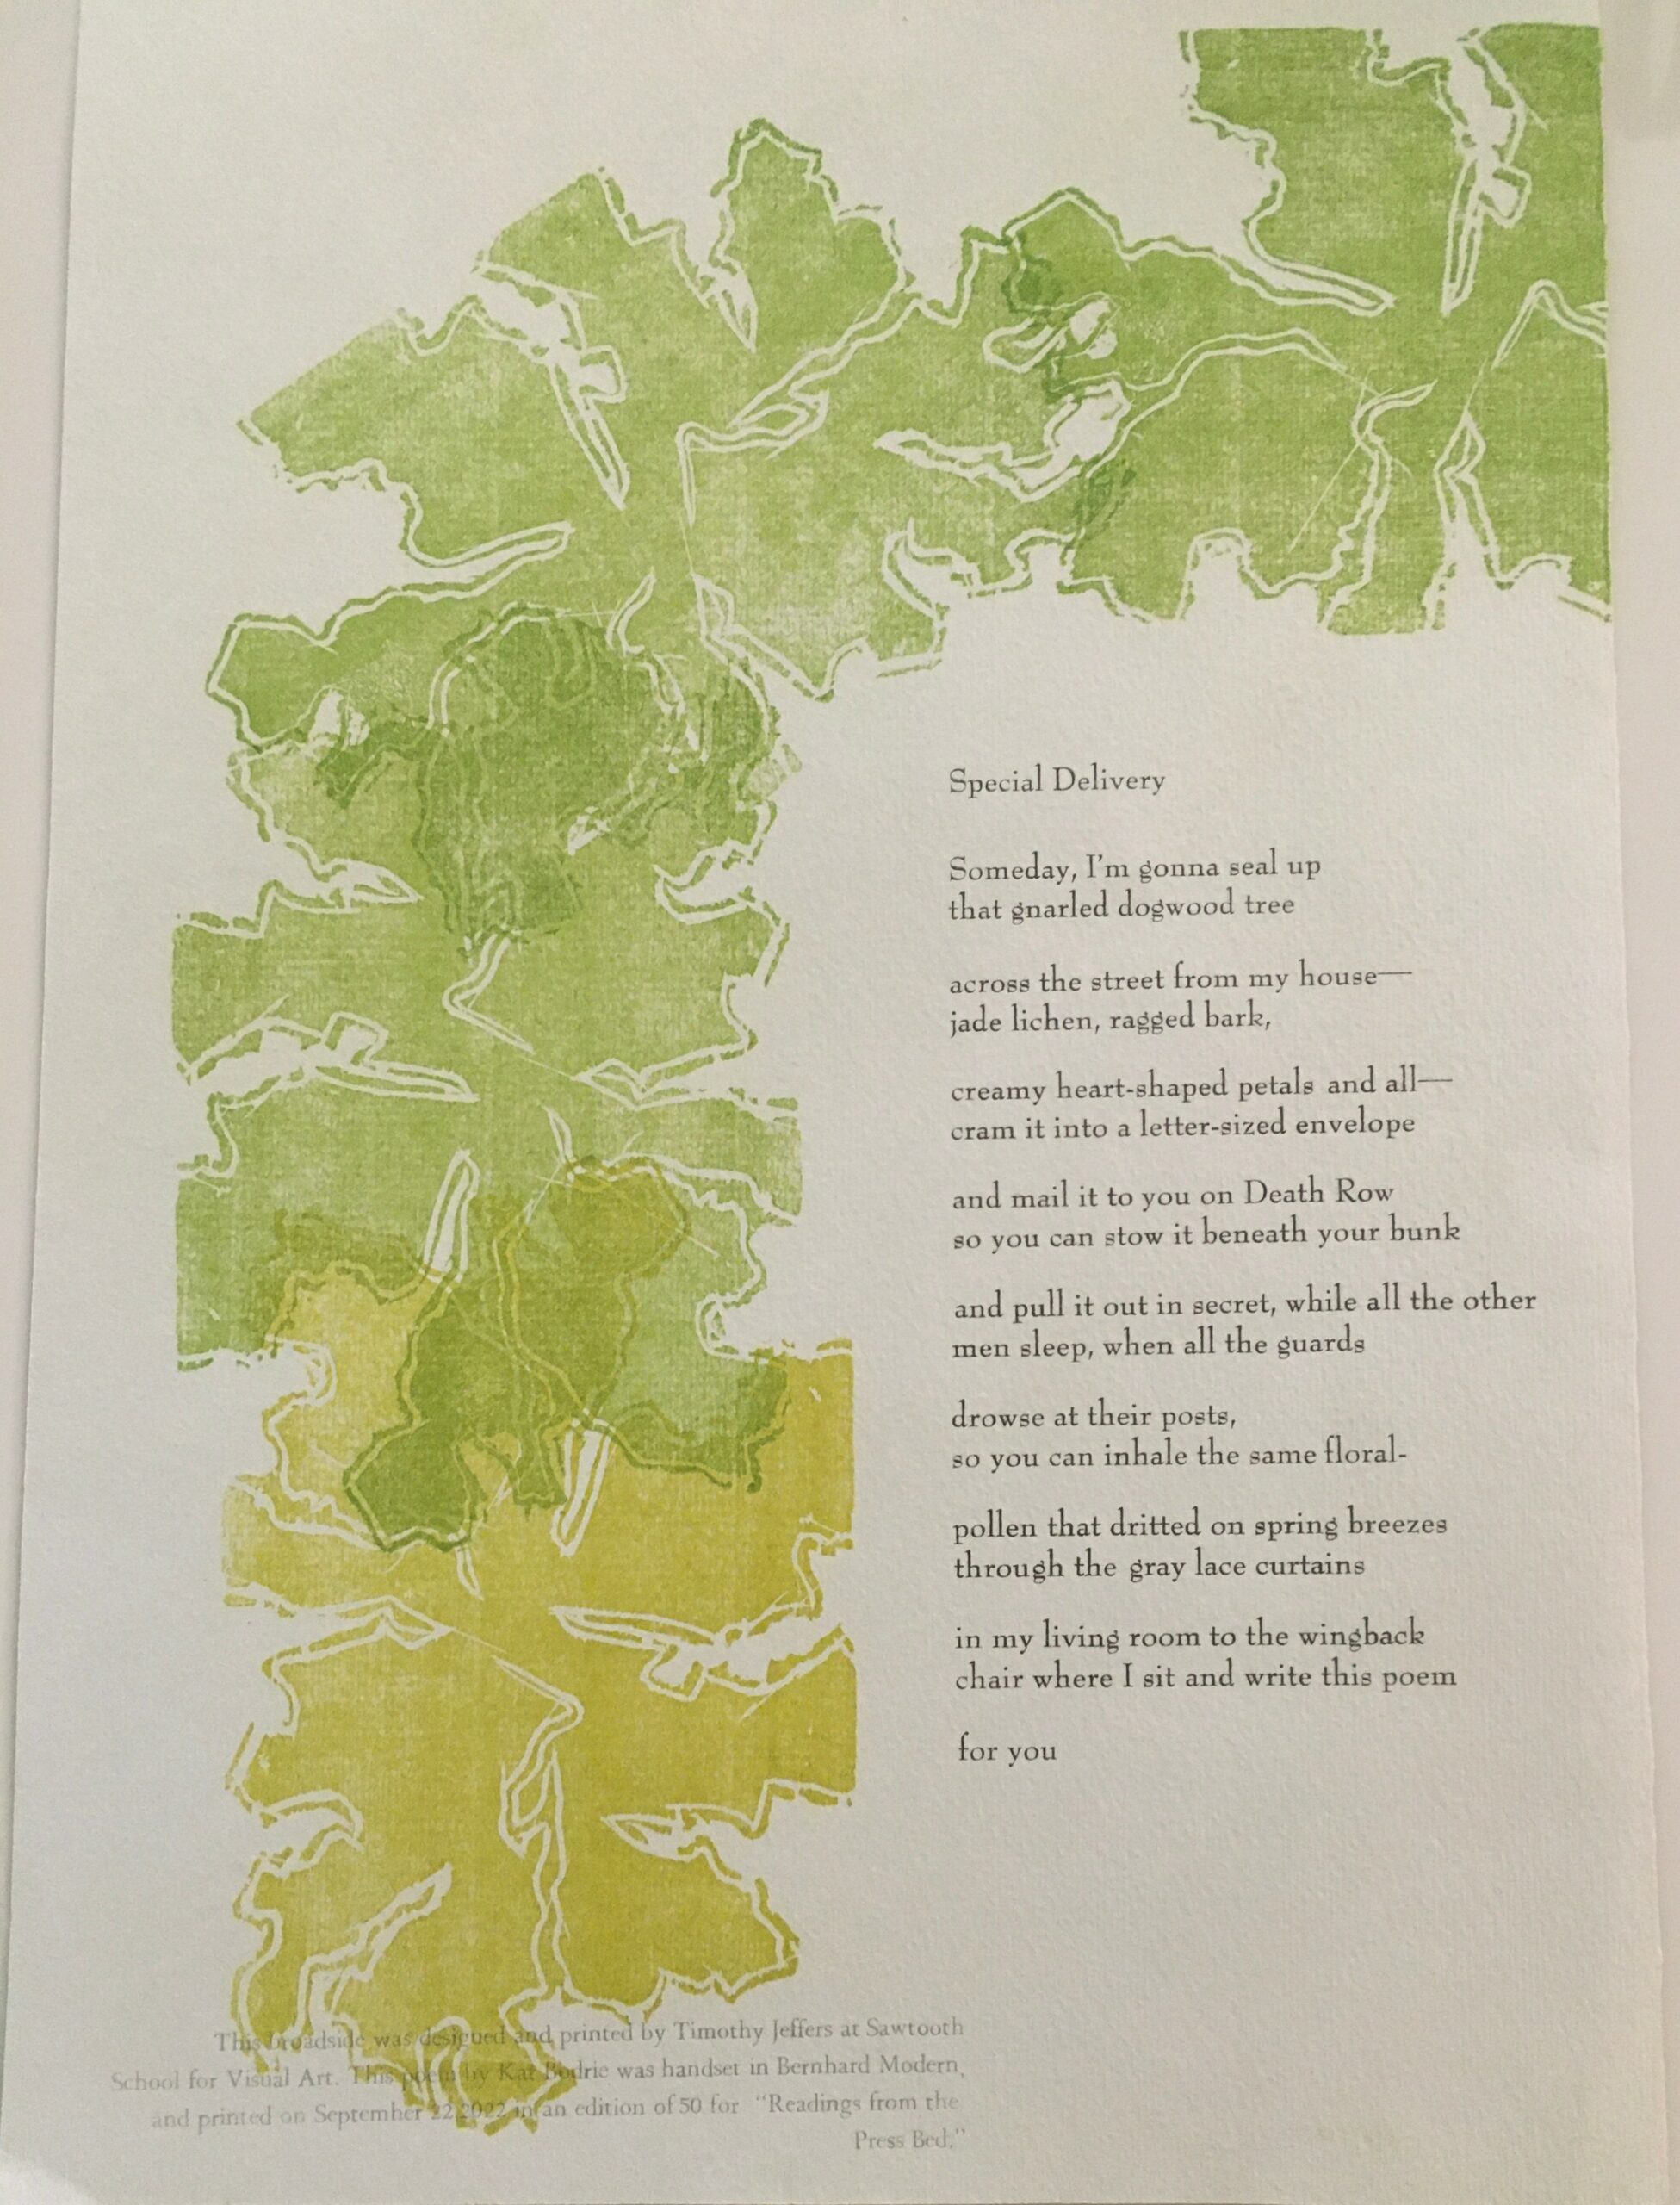 Special Delivery
Someday, I'm gonna seal up
that gnarled dogwood tree
across the street from my house—
jade lichen, ragged bark,
creamy heart-shaped petals and all—
cram it into a letter-sized envelope
and mail it to you on Death Row
so you can stow it beneath your bunk
and pull it out in secret, while all the other
men sleep, when all the guards
drowse at their posts,
so you can inhale the same floral-
pollen that dritted on spring breezes
through the gray lace curtains
in my living room to the wingback
chair where I sit and write this poem
for you
This broadside was designed and printed by Timothy Jeffers at Sawtooth
School for Visual Art. This poem by Kat Bodrie was handset in Bernhard Modern,
and printed on September 22 2022 in an edition of 50 for "Readings from the
Press Bed."